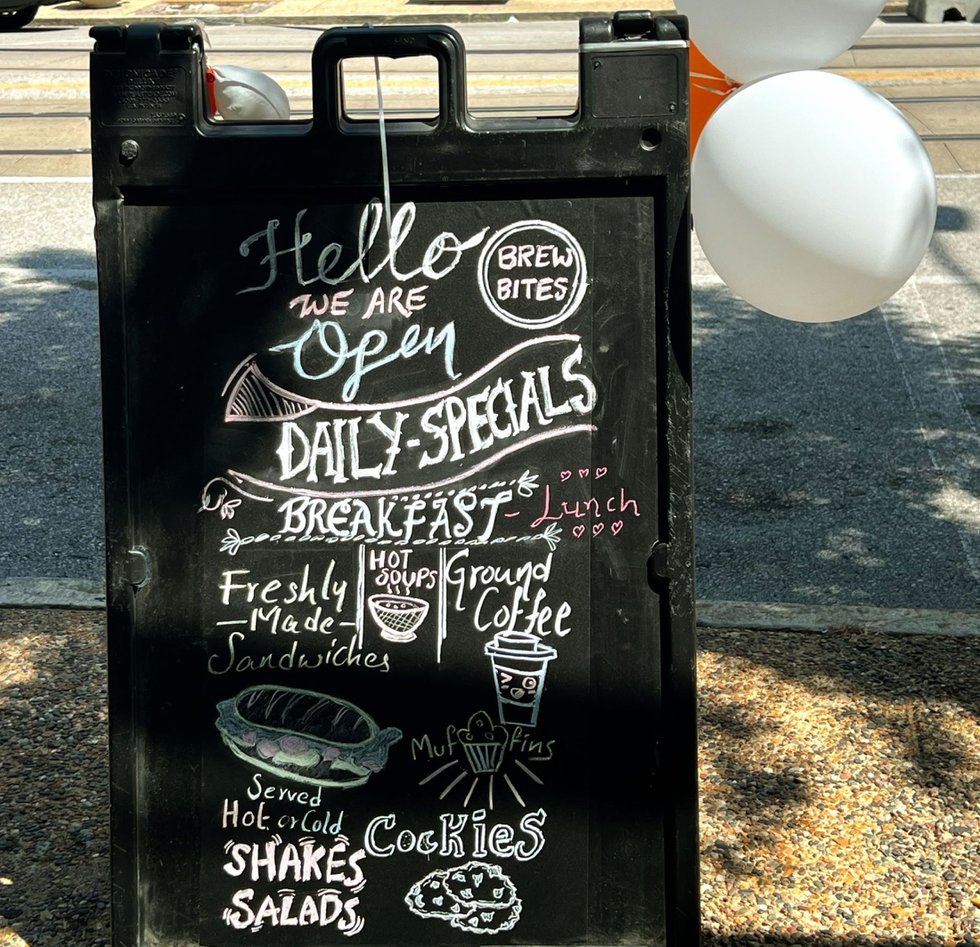 Hello
BREW
BITES
WE ARE
Open
DAILY-SPECIALS
BREAKFAST - Lunch
Freshly
-Made-
Sandwiches
HOT
SOUPS
Ground
Coffee
Muffins
Served
Hot or Cold
SHAKES
SALADS
COOKIES